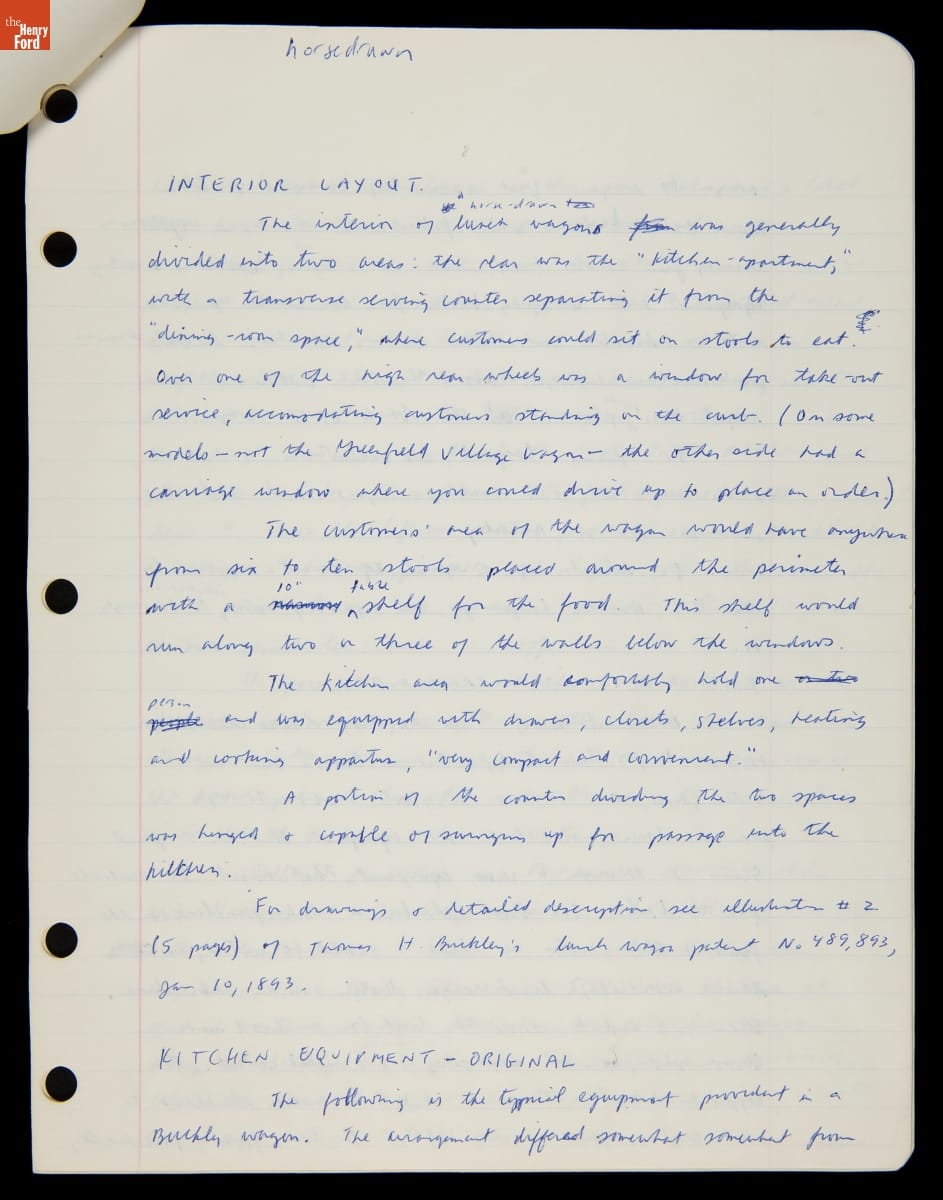 the
Henry
Ford
horsedrawn
INTERIOR LAYOUT.
a horse-drawn
The interior of lunch wagons was generally
divided into two areas: the rear was the "kitchen-apartment,"
with a transverse serving counter separating it from the
"dining-room space," where customers could sit on stools to eat.
Over one of the high rear wheels was a window for take-out
service, accomodating customers standing on the curb. (On some
models – not the Greenfield Village wagon – the other side had a
carriage window where you could drive up to place an order.)
The customers' area of the wagon would have anywhere
from six to ten stools placed around the perimeter
10" table
with a narrow shelf for the food. This shelf would
run along two or three of the walls below the windows.
The kitchen area would comfortably hold one or two
person
people and was equipped with drawers, closets, shelves, heating
and cooking apparatus, "very compact and convenient."
A portion of the counter dividing the two spaces
was hinged & capable of swinging up for passage into the
kitchen.
For drawings & detailed description see illustration # 2
(5 pages) of Thomas H. Buckley's lunch wagon patent No 489,893,
Jan 10, 1893.
KITCHEN EQUIPMENT – ORIGINAL
The following is the typical equipment provided in a
Buckley wagon. The arrangement differed somewhat somewhat from